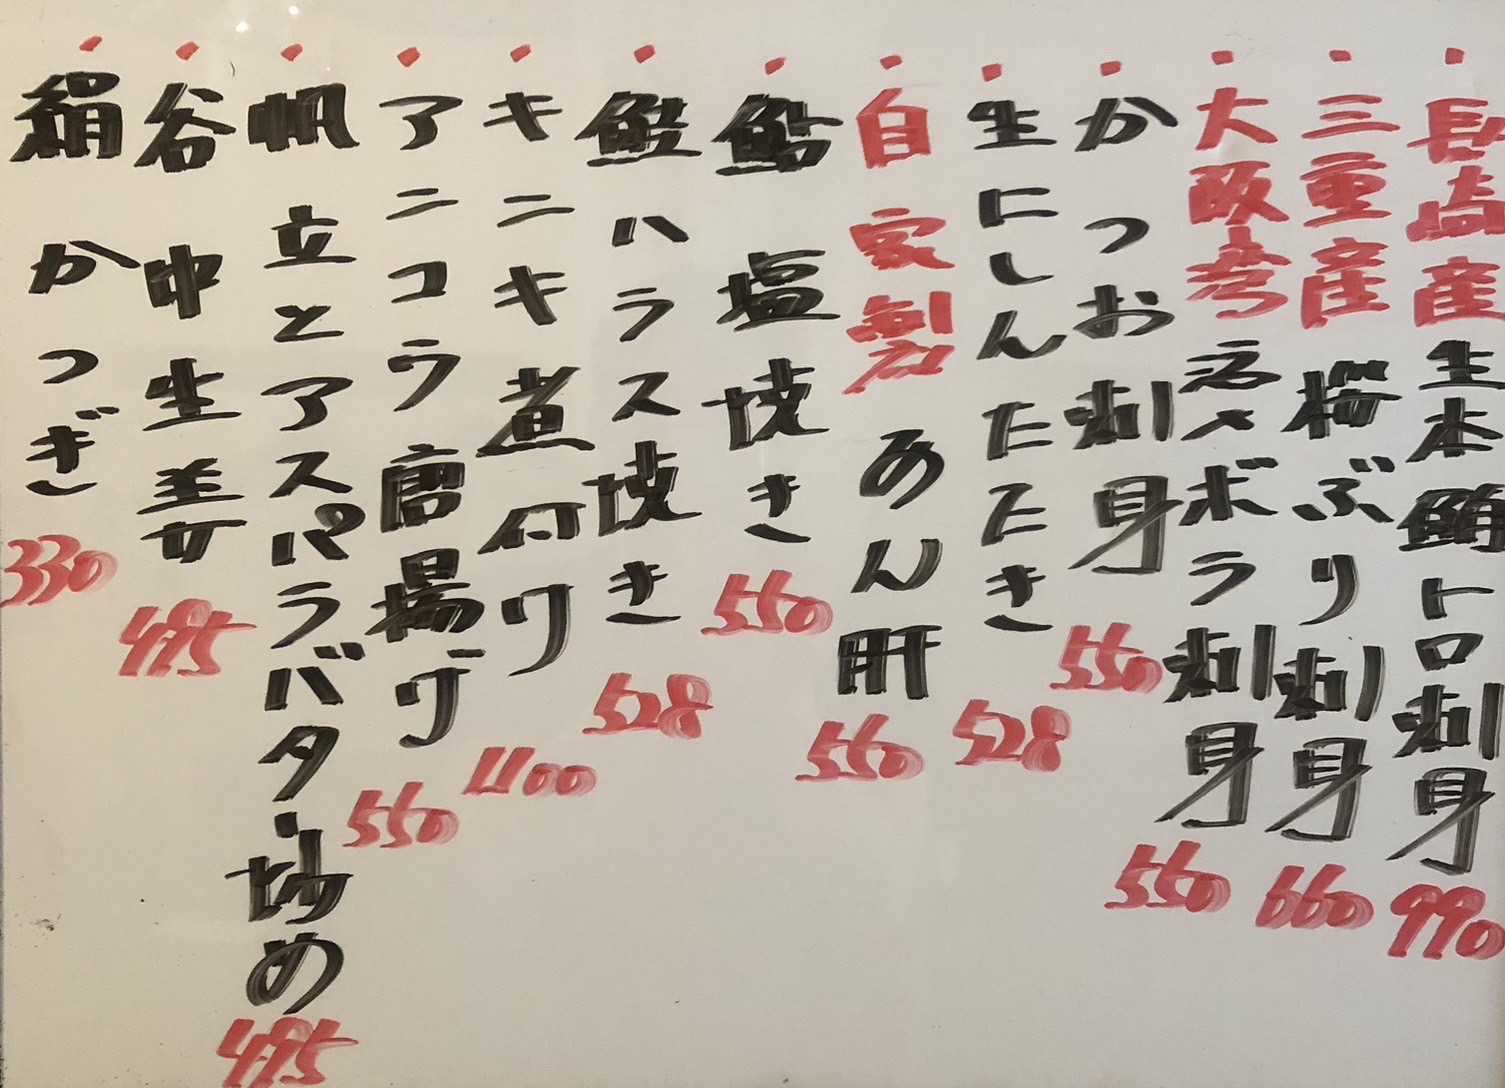 ・長崎産生本鮪トロ刺身 990
・三重産桜ぶり刺身 660
・大阪産活〆ボラ刺身 550
・かつお刺身 550
・生にしんたたき 528
・自家製あん肝 550
・鮎塩焼き 550
・鮭ハラス焼き 528
・キンキ煮付け 1100
・アンコウ唐揚げ 550
・帆立とアスパラバター炒め 495
・谷中生姜 495
・絹かつぎ 330